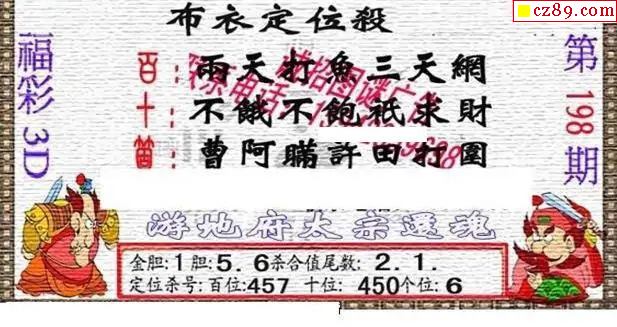 cz89.com
布衣定位殺
福彩3D
百：兩天打魚三天網
十：不餓不飽祇求財
箇：曹阿瞞許田打圍
第198期
游地府太宗還魂
金胆:1胆:5.6杀合值尾数:2.1.
定位杀号:百位:457 十位:450个位:6